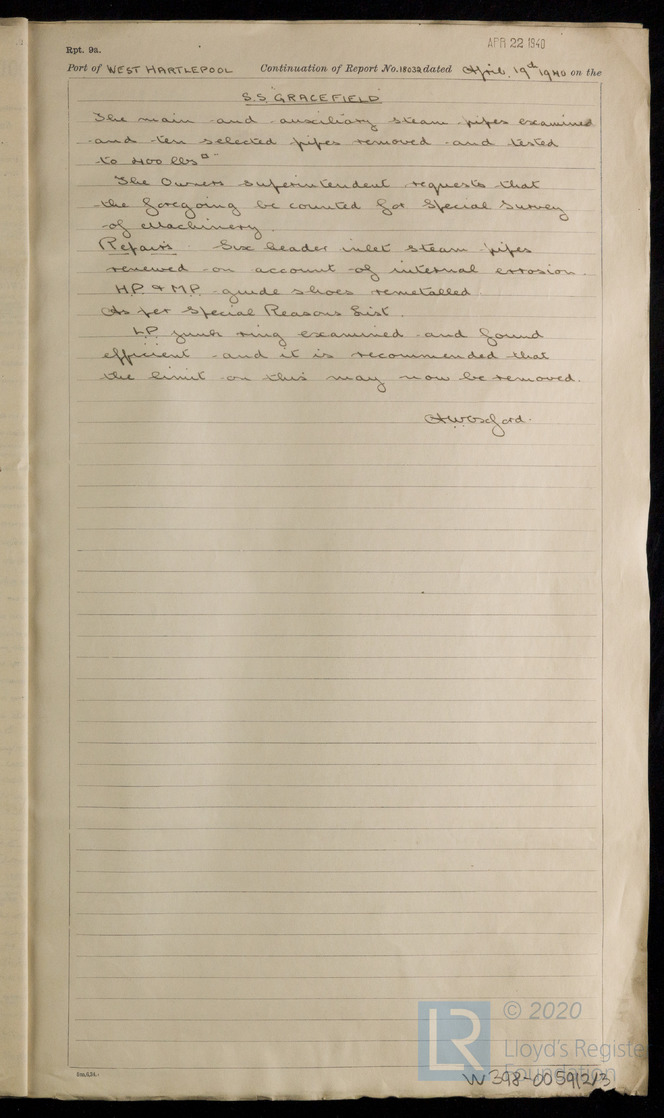 APR 22 1940
Rpt. 9a.
Port of WEST HARTLEPOOL Continuation of Report No. 18032 dated April 19th 1940 on the
S.S. GRACEFIELD
The main and auxiliary steam pipes examined
and ten selected pipes removed and tested
to 400 lbs □"
The Owners Superintendent requests that
the foregoing be counted for Special Survey
of Machinery.
Repairs Six header inlet steam pipes
renewed on account of internal erosion.
H.P. & M.P. guide shoes remetalled.
As per Special Reasons List.
L.P. junk ring examined and found
efficient and it is recommended that
the limit on this may now be removed.
© 2020
LR
Lloyd's Registe
Foundation
W398-00591 2/3